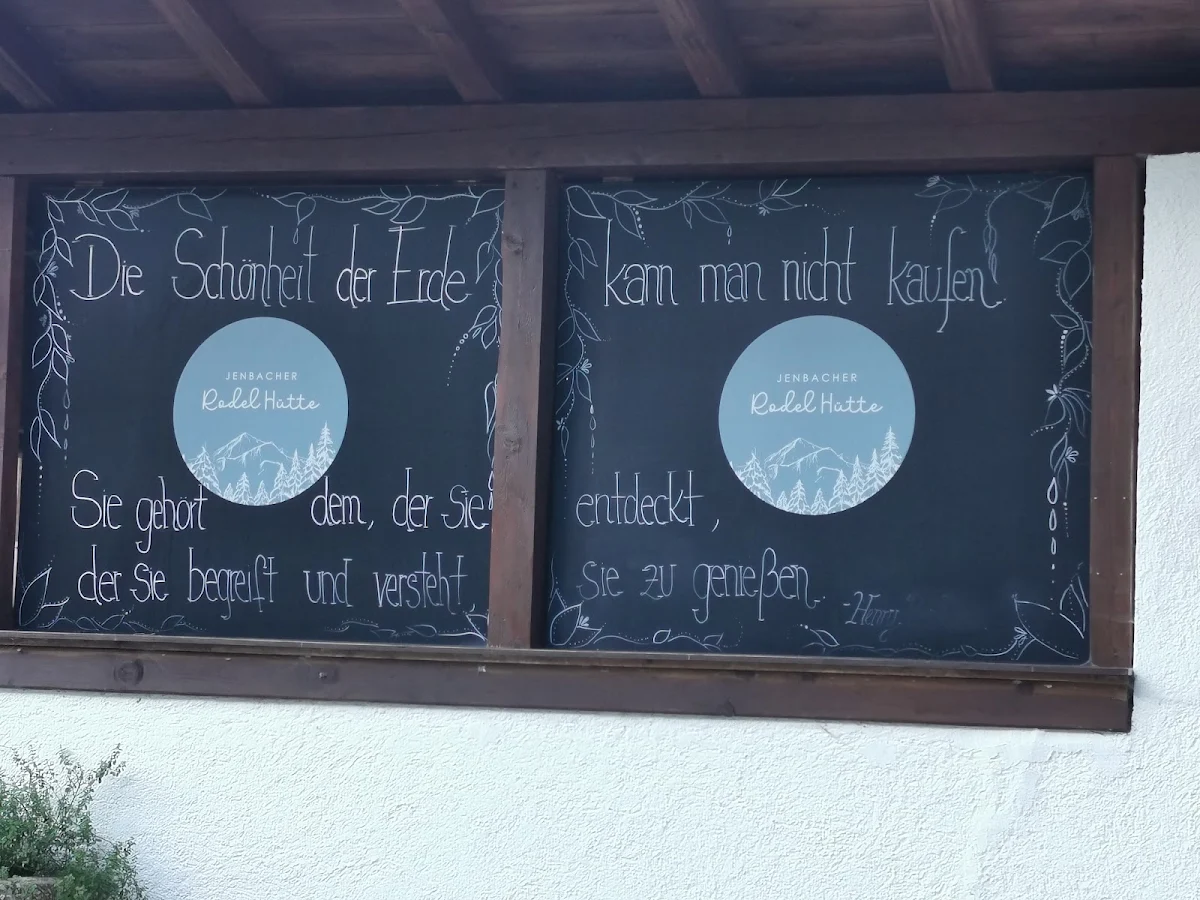 Die Schönheit der Erde kann man nicht kaufen.
JENBACHER
Rodel Hütte
JENBACHER
Rodel Hütte
Sie gehört dem, der sie entdeckt,
der sie begreift und versteht, sie zu genießen.
-Henry